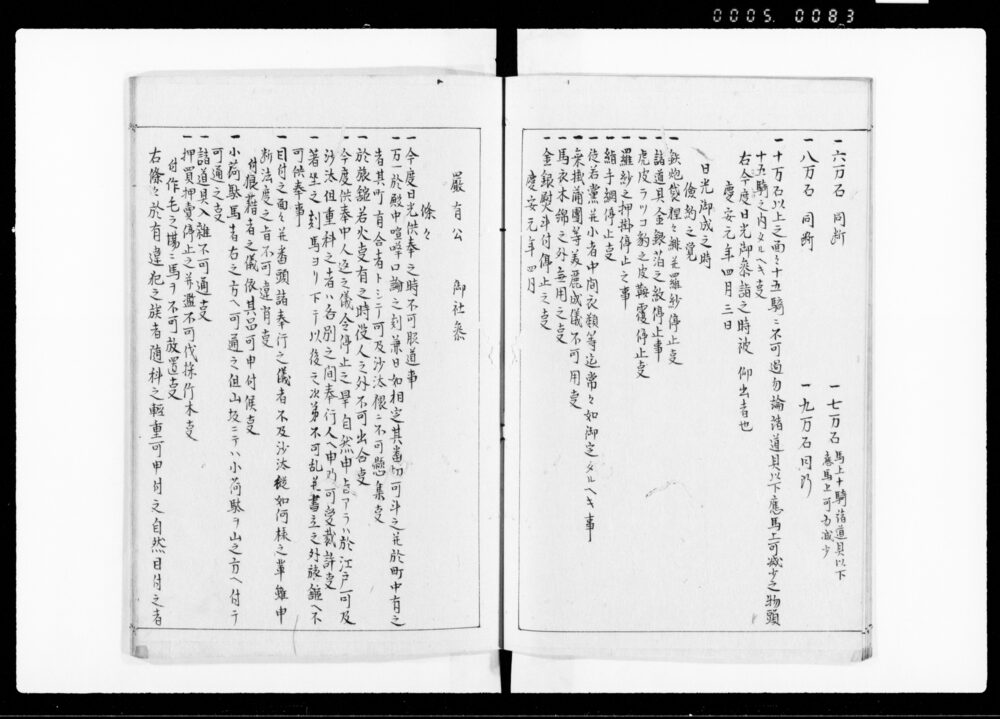 0005. 0083
一六万石 同断
一七万石 馬上十騎諸道具以下
應馬上可為減少
一八万石 同断
一九万石 同断
一十万石以上之面々十五騎ニ不可過勿論諸道具以下應馬上可減少之物頭
十五騎之内タルヘキ叓
右今度日光御参詣之時被 仰出者也
慶安元年四月三日
日光御成之時
儉約之覚
一鉄炮袋猩々緋并羅紗停止叓
一諸道具金銀箔之紋停止事
一虎皮ラツコ豹之皮鞍覆停止叓
一羅紗之押掛停止之事
一絹手綱停止之叓
一徒若黨并小者中間衣類等迄常々如御定タルヘキ事
一乗掛蒲團等美麗成儀不可用叓
一馬衣木綿之外無用之叓
一金銀熨斗付停止之叓
慶安元年四月
嚴有公 御社参
條々
一今度日光供奉之時不可脇道事
一万一於殿中喧嘩口論之刻兼日如相定其番切可斗之并於町中有之
者其町有合者トシテ可及沙汰猥ニ不可懸集叓
一於旅舘若火叓有之時役人之外不可出合叓
一今度供奉中人返之儀令停止之畢自然申㫖アラハ於江戸可及
沙汰但重科之者ハ各別之間奉行人ヘ申乃可受裁許叓
一著坐之刻馬ヨリ下テ以後之次第不可乱并書立之外旅舘ヘ不
可供奉事
一目付之面々并番頭諸奉行之儀者不及沙汰縦如何様之軰雖申
断法度之旨不可違背叓
付狼藉者之儀依其品可申付候叓
一小荷駄馬者右之方ヘ可通之但山坂ニテハ小荷駄ヲ山之方ヘ付テ
可通之叓
一諸道具入雜不可通叓
一押買押賣停止之并濫不可伐採竹木叓
付作毛之場ニ馬ヲ不可放置叓
右條々於有違犯之族者随科之軽重可申付之自然目付之者